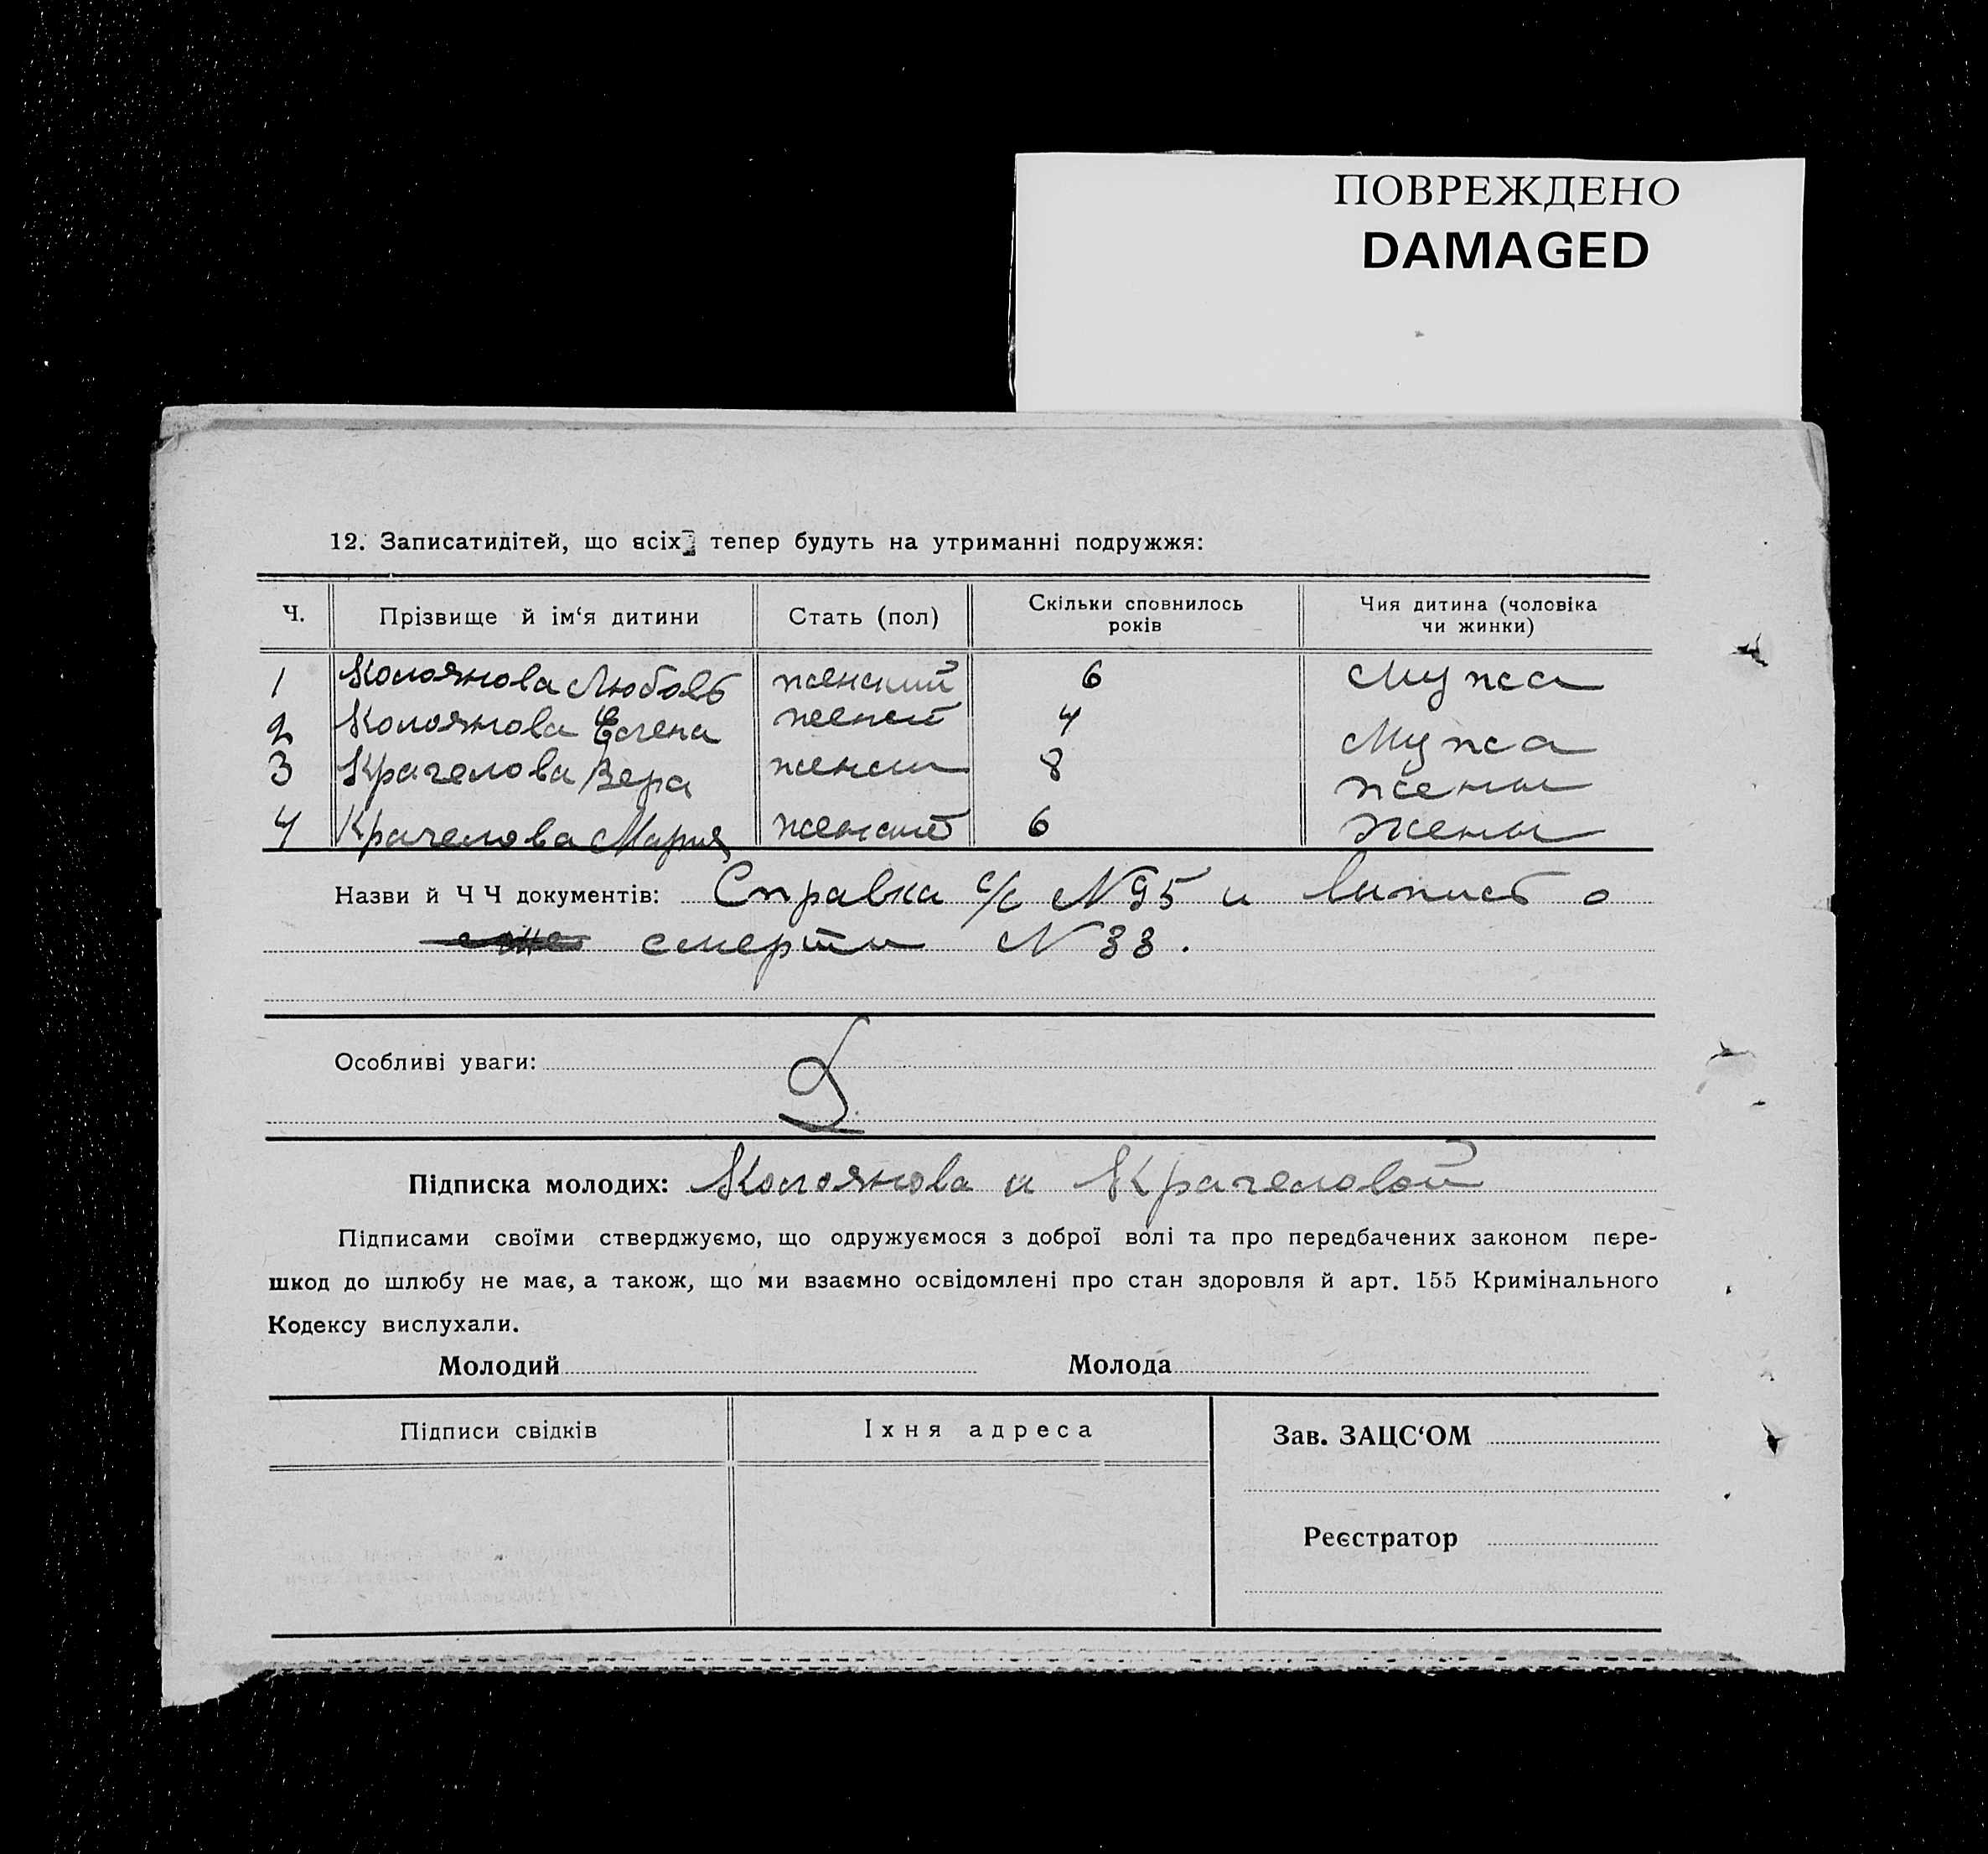 ПОВРЕЖДЕНО
DAMAGED
12. Записатидітей, що всіх тепер будуть на утриманні подружжя:
Ч. Прізвище й ім‘я дитини Стать (пол) Скільки сповнилось років Чия дитина (чоловіка чи жинки)
1 Колоянова Любовь женский 6 Мужа
2 Колоянова Елена 4 Мужа
3 Крачелова Вера женски 8 жены
4 Крачелова Мария женский 6 жены
Назви й Ч Ч документів: Справка с/с N 95 и о
смерти N 33.
Особливі уваги:
Підписка молодих: Колоянова и Крачеловой
Підписами своїми стверджуємо, що одружуємося з доброї волі та про передбачених законом пере-
шкод до шлюбу не має, а також, що ми взаємно освідомлені про стан здоровля й арт. 155 Кримінального
Кодексу вислухали.
Молодий Молода
Підписи свідків Іхня адреса Зав. ЗАЦС‘ОМ
Реєстратор